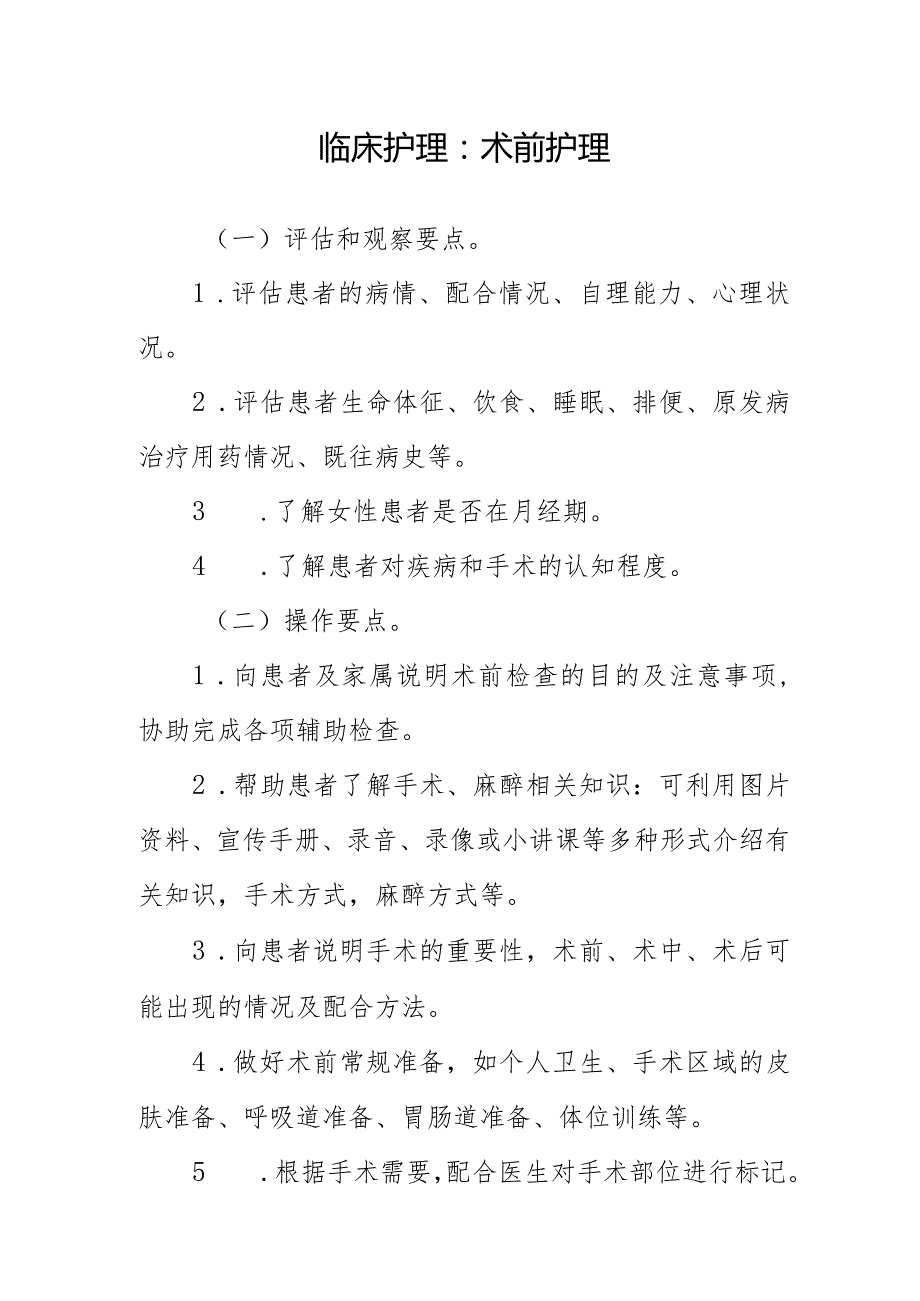 临床护理：术前护理
（一）评估和观察要点。
1.评估患者的病情、配合情况、自理能力、心理状
况。
2.评估患者生命体征、饮食、睡眠、排便、原发病
治疗用药情况、既往病史等。
3 .了解女性患者是否在月经期。
4 .了解患者对疾病和手术的认知程度。
（二）操作要点。
1.向患者及家属说明术前检查的目的及注意事项，
协助完成各项辅助检查。
2.帮助患者了解手术、麻醉相关知识：可利用图片
资料、宣传手册、录音、录像或小讲课等多种形式介绍有
关知识，手术方式，麻醉方式等。
3.向患者说明手术的重要性，术前、术中、术后可
能出现的情况及配合方法。
4.做好术前常规准备，如个人卫生、手术区域的皮
肤准备、呼吸道准备、胃肠道准备、体位训练等。
5 .根据手术需要，配合医生对手术部位进行标记。